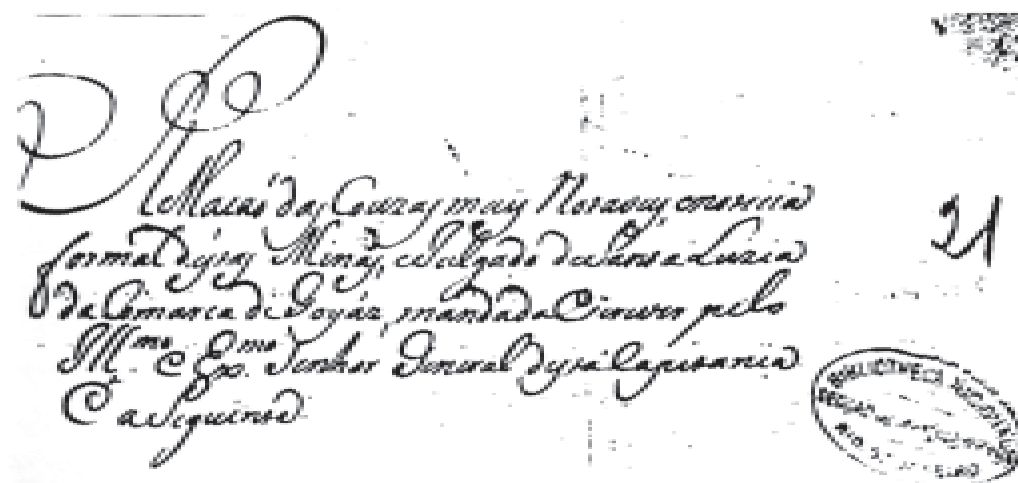 Relação das Couzas mais Notaveis, e noticia
formal destas Minas, e Julgado de Santa Luzia
da Comarca de Goyaz, mandada Escrever pelo
Ill.mo e Ex.mo Senhor General desta Capitania
E a Seguinte
21
BIBLIOTHECA NACIONAL
RIO DE JANEIRO